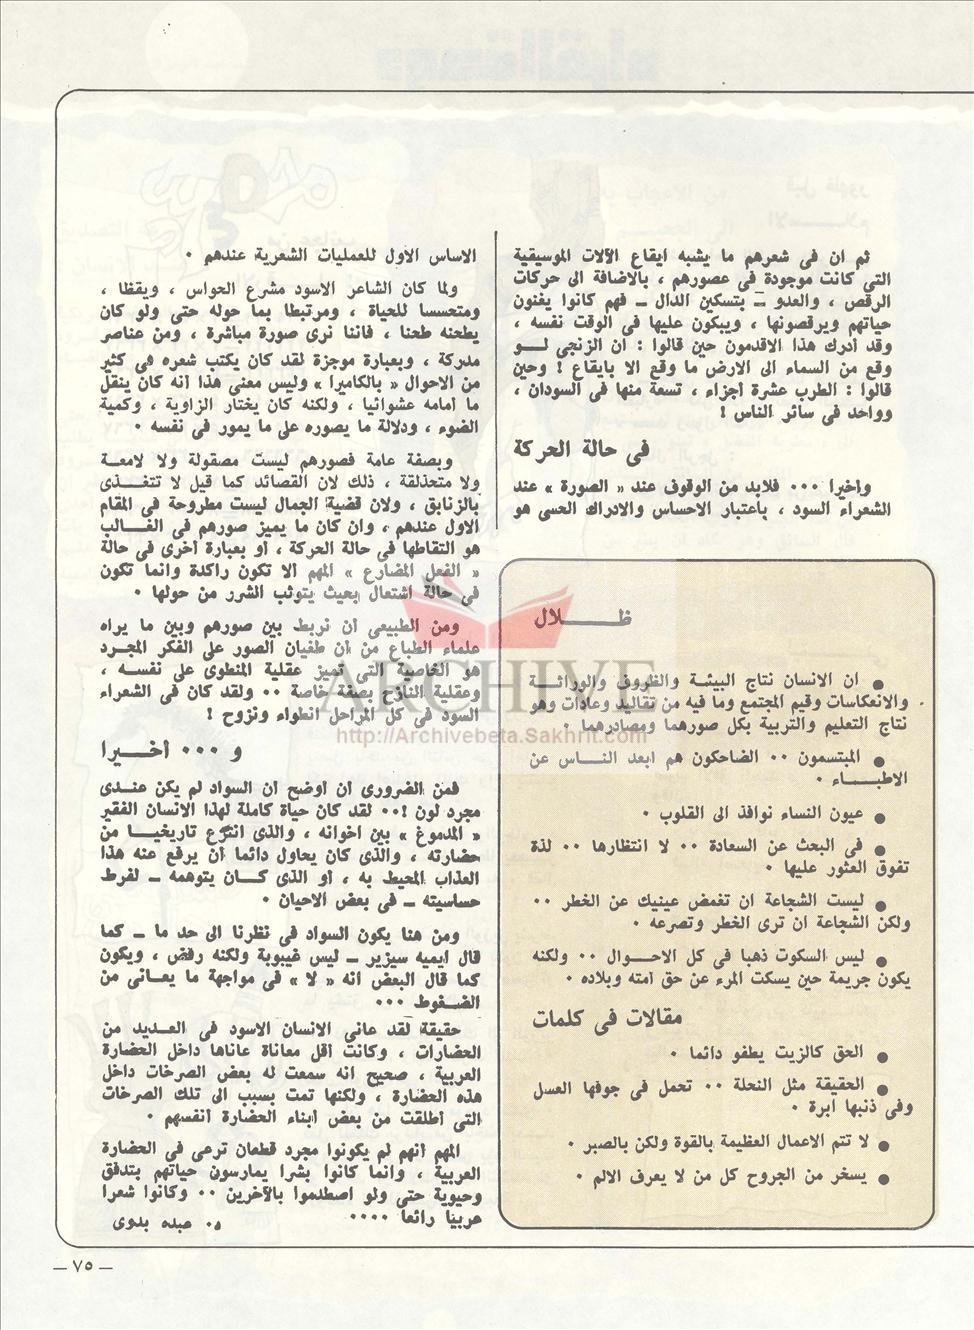 ثم ان فى شعرهم ما يشبه ايقاع الآلات الموسيقية
التى كانت موجودة فى عصورهم ، بالاضافة الى حركات
الرقص ، والعدو ــ بتسكين الدال ــ فهم كانوا يغنون
حياتهم ويرقصونها ، ويبكون عليها فى الوقت نفسه ،
وقد أدرك هذا الاقدمون حين قالوا : ان الزنجى لــو
وقع من السماء الى الارض ما وقع الا بايقاع ! وحين
قالوا : الطرب عشرة أجزاء ، تسعة منها فى السودان ،
وواحد فى سائر الناس !
فى حالة الحركة
وأخيرا ٠٠٠ فلابد من الوقوف عند « الصورة » عند
الشعراء السود ، باعتبار الاحساس والادراك الحسى هو
الاساس الأول للعمليات الشعرية عندهم ٠
ولما كان الشاعر الاسود مشرع الحواس ، ويقظا ،
ومتحسسا للحياة ، ومرتبطا بما حوله حتى ولو كان
يطحنه طحنا ، فاننا نرى صورة مباشرة ، ومن عناصر
مدركة ، وبعبارة موجزة لقد كان يكتب شعره فى كثير
من الاحوال « بالكاميرا » وليس معنى هذا أنه كان ينقل
ما أمامه عشوائيا ، ولكنه كان يختار الزاوية ، وكمية
الضوء ، ودلالة ما يصوره على ما يمور فى نفسه ٠
وبصفة عامة فصورهم ليست مصقولة ولا لامعة
ولا متحذلقة ، ذلك لان القصائد كما قيل لا تتغــذى
بالزنابق ، ولان قضية الجمال ليست مطروحة فى المقام
الاول عندهم ، وان كان ما يميز صورهم فى الغــالب
هو التقاطها فى حالة الحركة ، أو بعبارة أخرى فى حالة
« الفعل المضارع » المهم ألا تكون راكدة وانما تكون
فى حالة اشتعال بحيث يتوثب الشرر من حولها ٠
ومن الطبيعى أن نربط بين صورهم وبين ما يراه
علماء الطباع من أن طغيان الصور على الفكر المجرد
هو الخاصية التى تميز عقلية المنطوى على نفســه ،
وعقلية النازح بصفة خاصة ٠٠ ولقد كان فى الشعراء
السود فى كل المراحل انطواء ونزوح !
و ٠٠٠ أخيرا
فمن الضرورى أن أوضح أن السواد لم يكن عنــدى
مجرد لون !٠٠ لقد كان حياة كاملة لهذا الانسان الفقير
« المدموغ » بين اخوانه ، والذى انتزع تاريخيــا من
حضارته ، والذى كان يحاول دائما أن يرفع عنه هذا
العذاب المحيط به ، أو الذى كــان يتوهمه ــ لفرط
حساسيته ــ فى بعض الاحيان ٠
ومن هنا يكون السواد فى نظرنا الى حد ما ــ كما
قال ايميه سيزير ــ ليس غيبوبة ولكنه رفض ، ويكون
كما قال البعض انه « لا » فى مواجهة ما يعــانى من
الضغوط ٠٠٠
حقيقة لقد عانى الانسان الاسود فى العــديد من
الحضارات ، وكانت أقل معاناة عاناها داخل الحضارة
العربية ، صحيح أنه سمعت له بعض الصرخات داخل
هذه الحضارة ، ولكنها تمت بسبب الى تلك الصرخات
التى أطلقت من بعض أبناء الحضارة أنفسهم ٠
المهم أنهم لم يكونوا مجرد قطعان ترعى فى الحضارة
العربية ، وانما كانوا بشرا يمارسون حياتهم بتدفق
وحيوية حتى ولو اصطلموا بالآخرين ٠٠ وكانوا شعرا
عربيا رائعا ٠٠٠٠
د٠ عبده بدوى
ظـــــلال
● ان الانسان نتاج البيئــة والظروف والوراثــة
والانعكاسات وقيم المجتمع وما فيه من تقاليد وعادات وهو
نتاج التعليم والتربية بكل صورهما ومصادرهما ٠
● المبتسمون ٠٠ الضاحكون هم أبعد النــاس عن
الاطبــاء ٠
● عيون النساء نوافذ الى القلوب ٠
● فى البحث عن السعادة ٠٠ لا انتظارها ٠٠ لذة
تفوق العثور عليها ٠
● ليست الشجاعة أن تغمض عينيك عن الخطر ٠٠
ولكن الشجاعة أن ترى الخطر وتصرعه ٠
● ليس السكوت ذهبا فى كل الاحــوال ٠٠ ولكنه
يكون جريمة حين يسكت المرء عن حق أمته وبلاده ٠
مقالات فى كلمات
● الحق كالزيت يطفو دائما ٠
● الحقيقة مثل النحلة ٠٠ تحمل فى جوفها العسل
وفى ذنبها ابرة ٠
● لا تتم الاعمال العظيمة بالقوة ولكن بالصبر ٠
● يسخر من الجروح كل من لا يعرف الالم ٠
ــ ٧٥ ــ
ARCHIVE
http://Archivebeta.Sakhrit.com